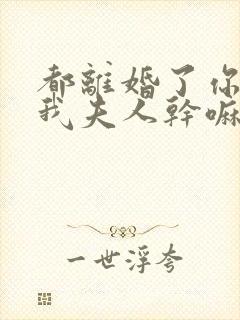 都離婚了你
我夫人幹嘛
一世浮夸